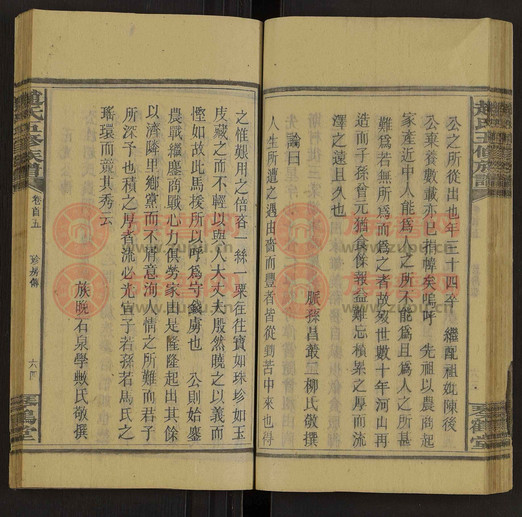 公之所從出也年三十四卒 繼配祖妣陳後
公東養數載亦已捐幃矣嗚呼 先祖以農商起
家產近中人能爲人之所不能爲且爲人之所甚
難爲若無所爲而爲之者故歿世數十年河山再
造而子孫曾元猶食餘報益難忘積累之厚而流
澤之遠且久也
脈孫昌叢 柳氏敬撰
論曰
人生所遭之遇由嗇而豐者皆從劬苦中來也得
之惟艱用之倍吝一絲一粟在往寶如珠珍如玉
皮藏之而不輕以與人大丈夫殷然曉之以義而
慳如故此馬援所以呼爲守錢虜也 公則始鏖
農戰繼鏖商戰心力俱勞家由是隆隆起出其餘
以濟隣里鄉黨而不屑意洵人情之所難而君子
所深予也積之厚者流必光宣子若孫若馬氏之
瑤環而競其秀云
族晚石泉學斆氏敬撰
趙氏五修族譜
卷首五
六四
琴鶴堂
趙氏五修族譜
琴鶴堂
族譜網
www.zupu.cn